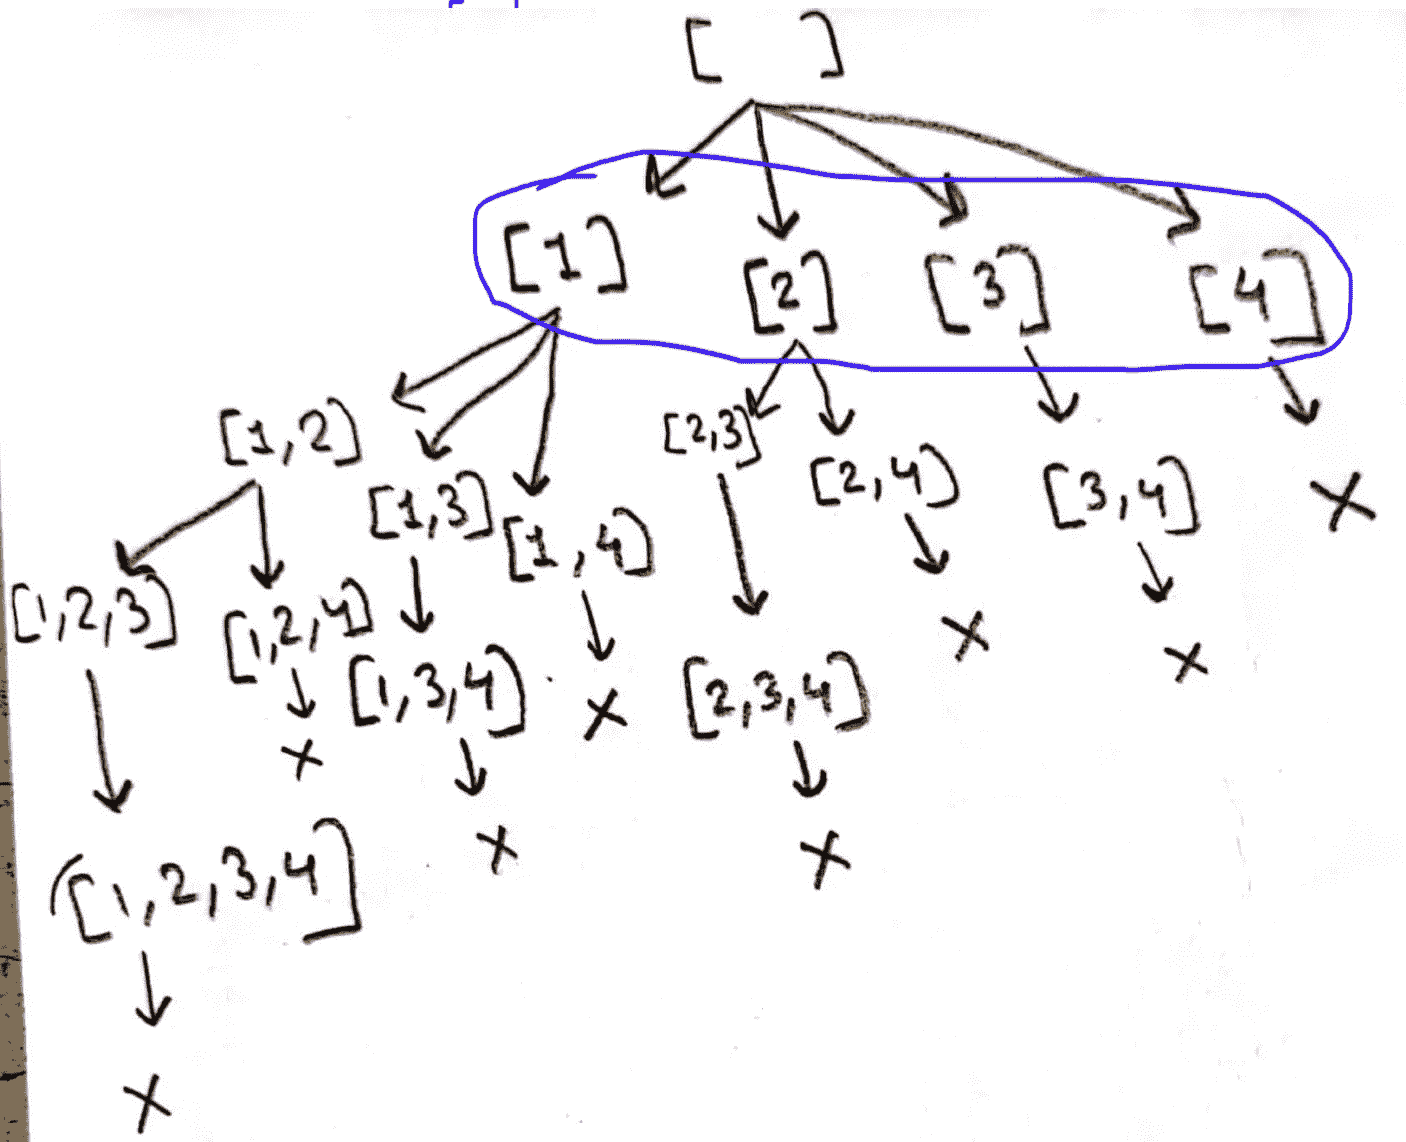 [ ]
[1] [2] [3] [4]
[1,2] [1,3] [1,4] [2,3] [2,4] [3,4] X
[1,2,3] [1,2,4] [1,3,4] X [2,3,4] X X
X X X
[1,2,3,4]
X